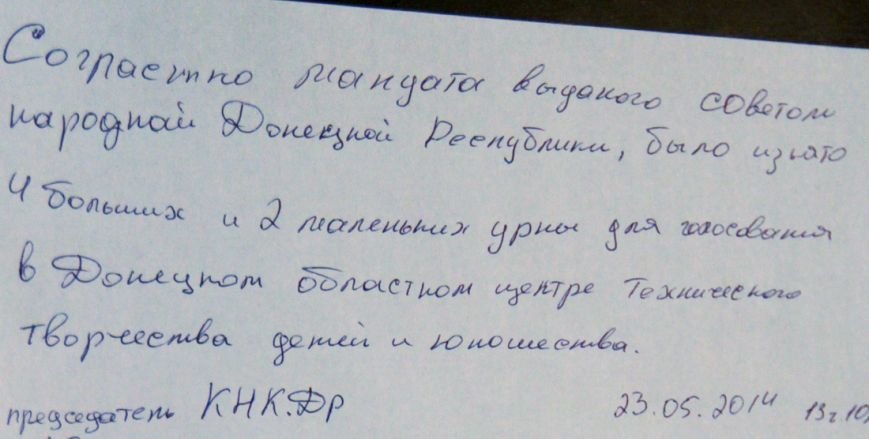 Согластно мандата выданого советом
народнай Донецкай Республики, было изьято
4 больших и 2 маленьких урны для голосования
в Донецком областном центре Технического
творчества детей и юношества.
председатель КНК.ДР 23.05.2014 13ч.10